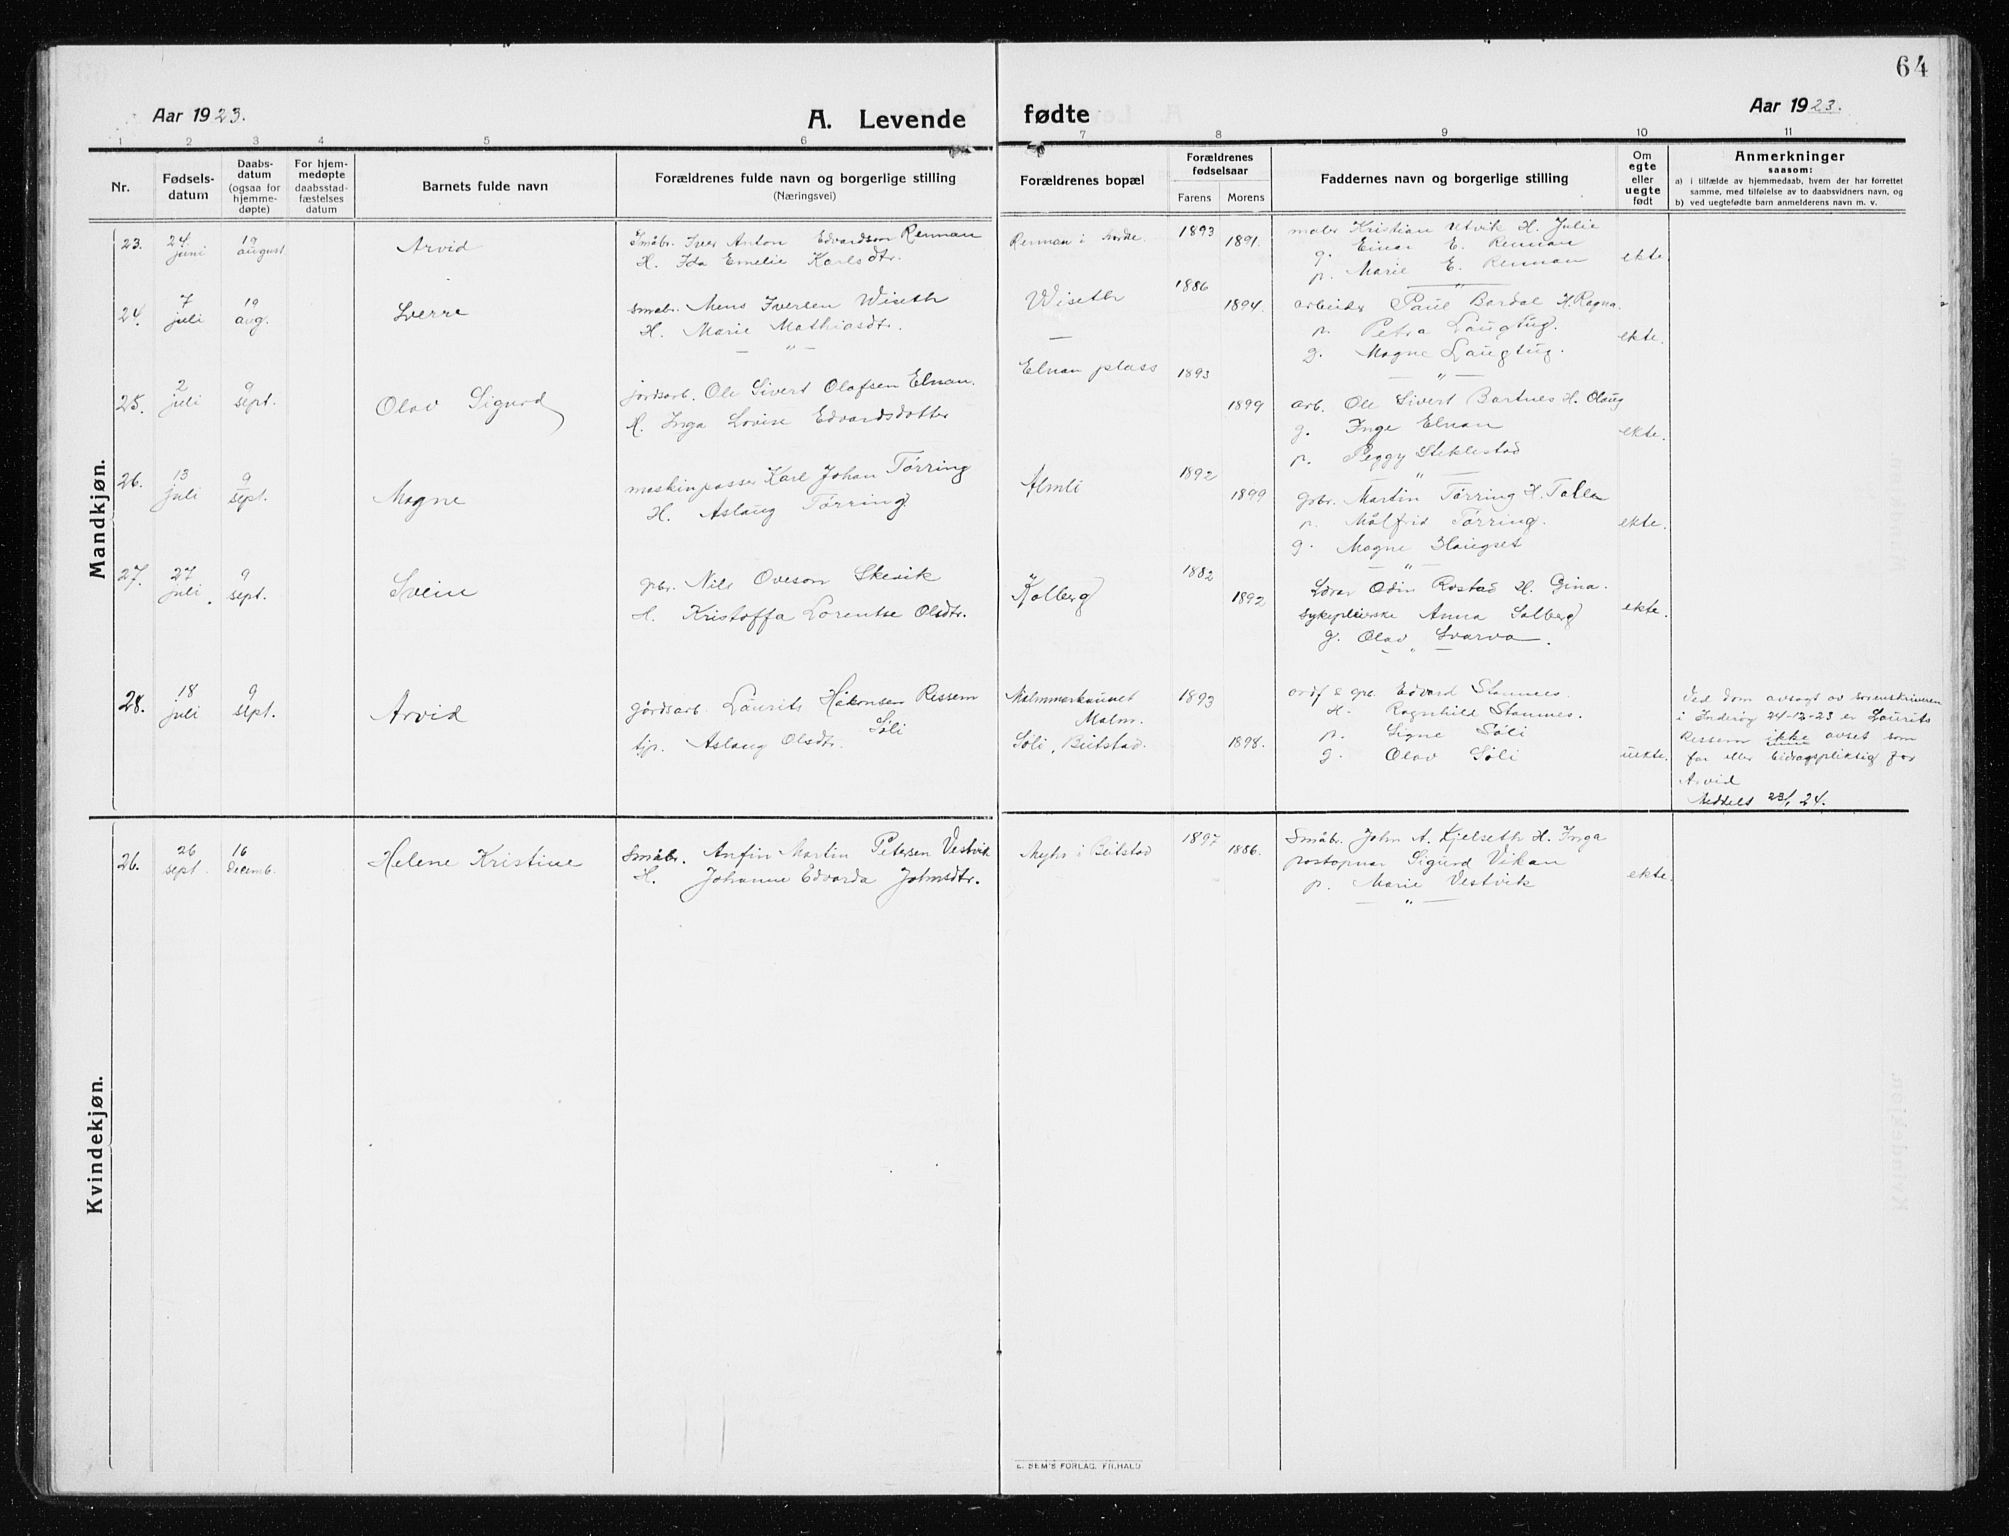 64
Aar 1923.
A. Levende
fødte
Aar 1923.
1 2 3 4 5 6 7 8 9 10 11
Nr.
Fødsels-
datum
Daabs-
datum
(ogsaa for
hjemme-
døpte)
For hjem-
medøpte
daabsstad-
fæstelses
datum
Barnets fulde navn
Forældrenes fulde navn og borgerlige stilling
(Næringsvei)
Forældrenes bopæl
Forældrenes
fødselsaar
Farens Morens
Faddernes navn og borgerlige stilling
Om
egte
eller
uegte
født
Anmerkninger
saasom:
a) i tilfælde av hjemmedaab, hvem der har forrettet
samme, med tilføielse av to daabsvidners navn, og
b) ved uegtefødte barn anmelderens navn m. v.
Mandkjøn.
23. 24 juni 19 august Arvid
Småbr. Iver Anton Edvardson Rennan
H. Ida Emelie Karlsdtr.
Rennan i 1893 1891.
Kristian Utvik H. Julie
g. Einar E. Rennan
p. Marie E. Rennan
ekte
24. 7 juli 19 aug. Sverre
småbr. Mens Iversen Wiseth
H. Marie Mathiasdtr.
Wiseth 1886 1894.
arbeider Paul Bardal H. Ragna.
p. Petra Langtug.
g. Magne Langtug.
ekte.
25. 2 juli 9 sept. Olav Sigurd
jordarb. Ole Sivert Olafsen Elnan.
H. Inga Lovise Edvardsdotter
Elnan plass 1893 1899
arb. Ole Sivert Bartnes H. Olaug
g. Inge Elnan
p. Peggy Steklestad
ekte.
26. 13 juli 9 sept. Magne
maskinpasser Karl Johan Tørring
H. Aslaug Tørring
Almli 1892 1899
gbr. Martin Tørring H.
p. Målfrid Tørring.
g. Magne Haugset
ekte.
27. 27 juli. 9 sept. Svein
gbr. Nils Oveson Skevik
H. Kristoffa Lorentse Olsdtr.
Kolberg 1882 1892
Lærer Odin Rostad H. Gina.
sykepleierske Anna Solberg
g. Olav Svarva.
ekte.
28. 18 juli 9 sept. Arvid
gårdsarb. Laurits Håkonsen Ressem
tjp. Aslaug Olsdtr. Søli
Malm.
Søli, Beitstad. 1893 1898.
ordf & gbr. Edvard Stamnes.
H. Ragnhild Stamnes.
p. Signe Søli
g. Olav Søli
uekte.
Ved dom avsagt av sorenskriveren
i Inderøy 24-12-23 er Laurits
Ressem ikke avset som
far eller bidragspliktig for
Arvid
Meddelt 23/1 24.
Kvindekjøn.
26. 26 sept. 16 Decemb. Helene Kristine
Småbr. Anfin Martin Petersen Vestvik
H. Johanne Edvarda Johnsdtr.
Myhr i Beitstad 1897 1886.
Småbr. John A. Kjelseth H. Inga
postopnar Sigurd Vikan
p. Marie Vestvik
ekte.
E. SEM'S FORLAG, FR.HALD